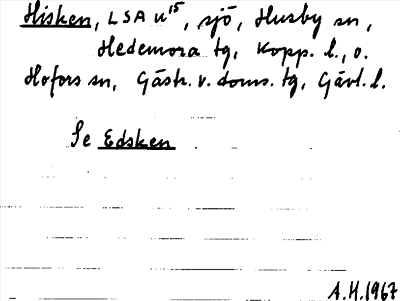 Hisken, LSA u¹⁵, sjö, Husby sn,
Hedemora tg, Kopp. l., o.
Hofors sn, Gästr. v. doms. tg, Gävl. l.
Se Edsken
A.H.1967